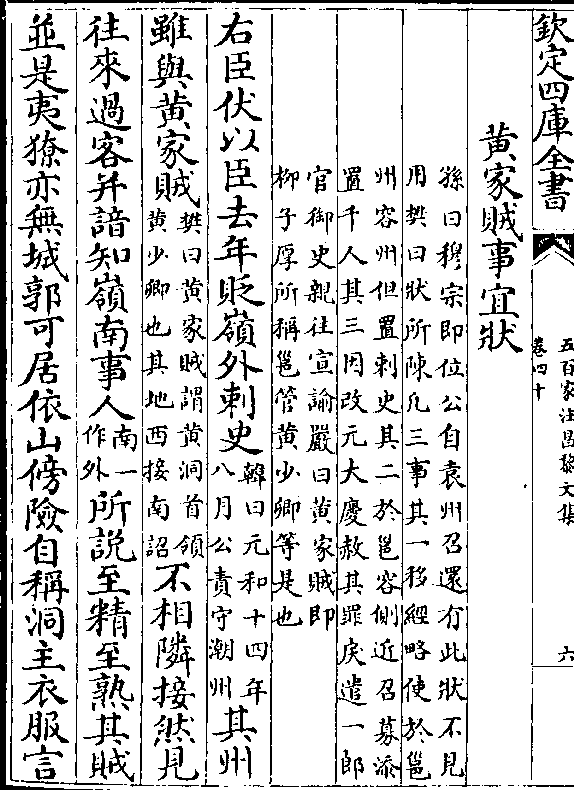 欽定四庫全書
五百家注昌黎文集
卷四十
六
黄家賊事宜狀
孫曰穆宗即位公自袁州召還有此狀不見
用樊曰狀所陳凡三事其一移經略使於邕
州容州但置刺史其二於邕容側近召募添
置千人其三因改元大慶赦其罪戾遣一郎
官御史親往宣諭嚴曰黄家賊即
柳子厚所稱邕管黄少卿等是也
右臣伏以臣去年貶嶺外刺史韓曰元和十四年八月公責守潮州其州
雖與黄家賊樊曰黄家賊謂黄洞首領黄少卿也其地西接南詔不相隣接然見
往來過客并諳知嶺南事人南一作外所說至精至熟其賊
並是夷獠亦無城郭可居依山傍險自稱洞主衣服言